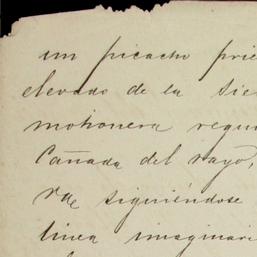 un picacho prie
elevado de la Sie
mohonera regu
Cañada del rayo,
siguiéndose
linea imaginari